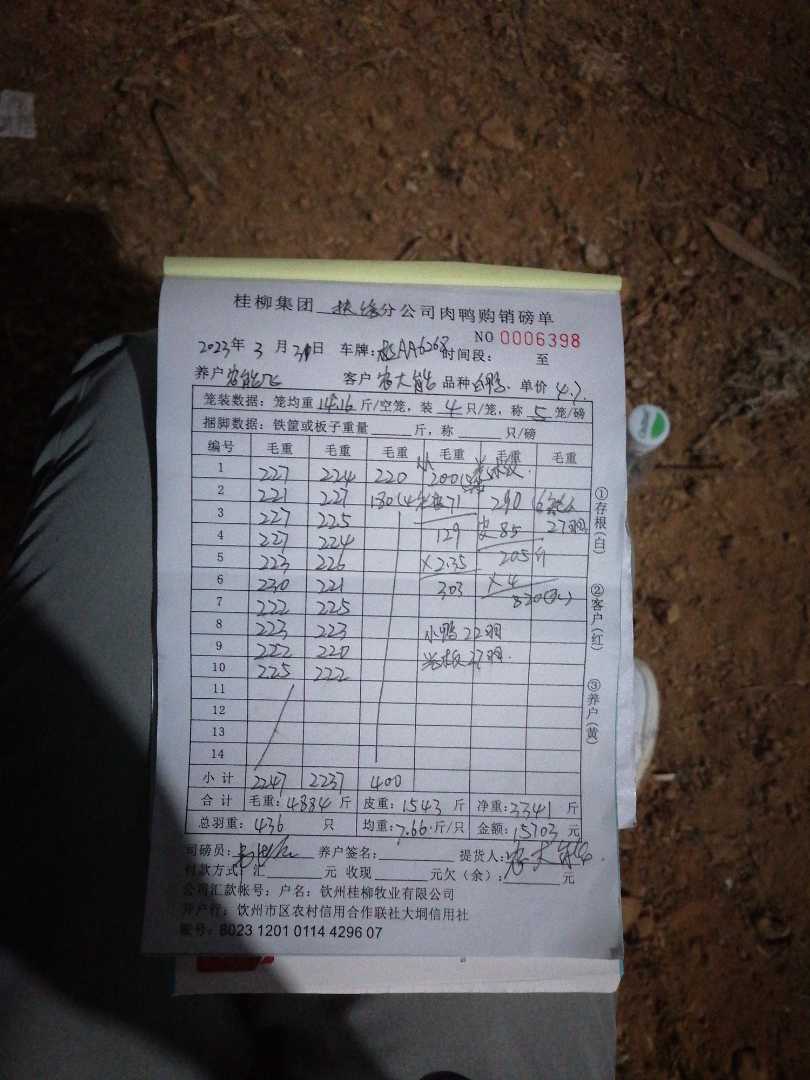 桂柳集团 扶绥分公司肉鸭购销磅单
NO 0006398
2023年 3 月 31日 车牌: AA6268 时间段: 至
养户 客户 农大能 品种 白鸭. 单价 4.7
笼装数据: 笼均重 14.16 斤/空笼, 装 4 只/笼, 称 5 笼/磅
捆脚数据: 铁筐或板子重量 斤, 称 只/磅
编号 毛重 毛重 毛重 毛重 毛重 毛重
1 227 224 220 小 200
2 221 227 180 71 290
3 227 225 129 皮 85 27羽
4 227 224 205斤
5 223 226 X 2.35 X 4
6 230 221 303 820
7 222 225
8 223 223 小鸭 22羽
9 222 220 27羽.
10 225 222
11
12
13
14
小计 2247 2237 400
合计 毛重: 4884 斤 皮重: 1543 斤 净重: 3341 斤
总羽重: 436 只 均重: 7.66 斤/只 金额: 15703 元
司磅员: 养户签名: 提货人: 农大能
付款方式: 汇 元 收现 元欠(余): 元
公司汇款帐号: 户名: 钦州桂柳牧业有限公司
开户行: 钦州市区农村信用合作联社大垌信用社
账号: 8023 1201 0114 4296 07
①存根(白)
②客户(红)
③养户(黄)